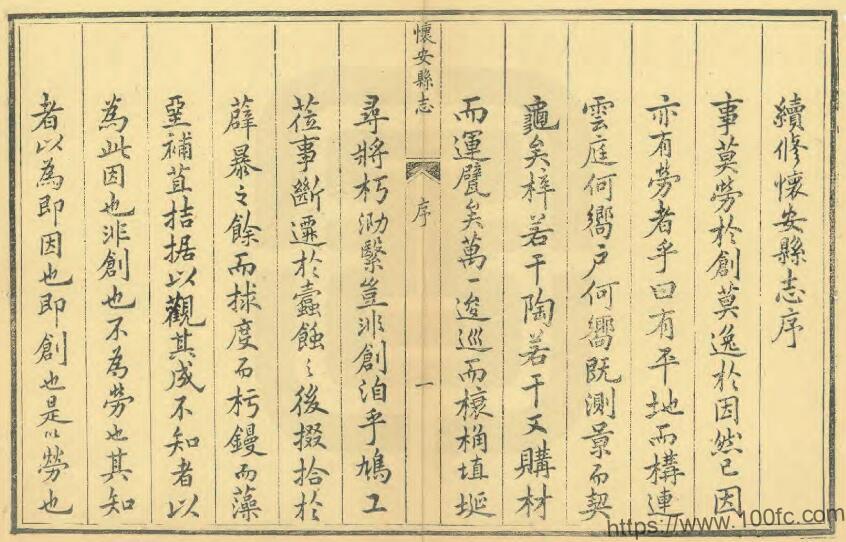 續修懷安縣志序
事莫勞於創莫逸於因然已因
亦有勞者乎曰有平地而構連
雲庭何嚮戶何嚮既測景而契
龜矣梓若干陶若干又購材
而運甓矣萬一逡巡而榱桷埴埏
懷安縣志
序
一
尋將朽泐繄豈非創洎乎鳩工
蒞事斷遷於蠹蝕之後掇拾於
薜暴之餘而捄度而杇鏝而藻
堊補苴拮据以觀其成不知者以
為此因也非創也不為勞也其知
者以為即因也即創也是以勞也
https://www.100fc.com